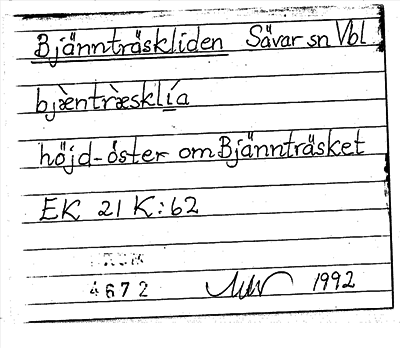 Bjännträskliden Sävar sn Vbl
bjæ̀ntræ̀sklía
höjd öster om Bjännträsket
EK 21 K:62
4672 1992